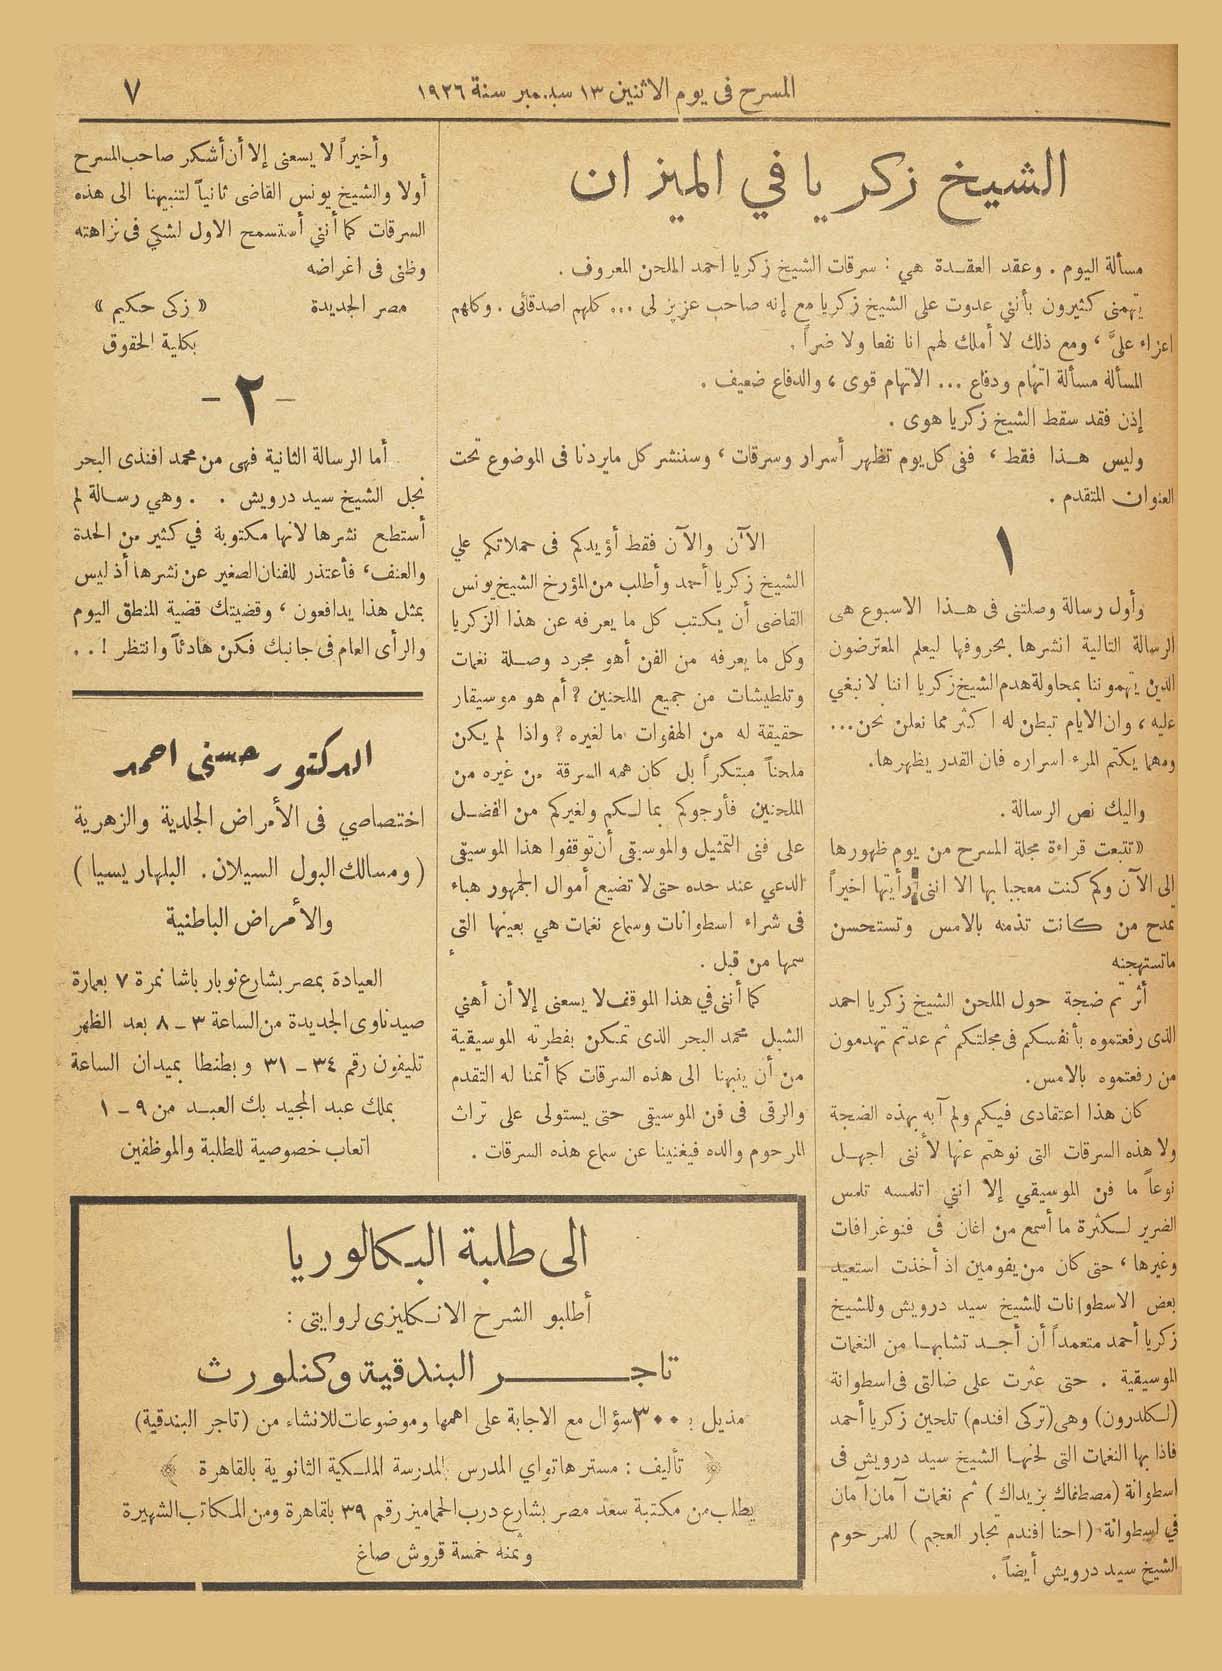 ٧
المسرح فى يوم الاثنين ١٣ سبتمبر سنة ١٩٢٦
الشيخ زكريا في الميزان
مسألة اليوم . وعقد العقدة هي : سرقات الشيخ زكريا احمد الملحن المعروف .
يتهمنى كثيرون بأننى عدوت على الشيخ زكريا مع إنه صاحب عزيز لى ... كلهم اصدقائى . وكلهم
اعزاء علىَّ ، ومع ذلك لا أملك لهم انا نفعا ولا ضراً .
المسألة مسألة اتهام ودفاع ... الاتهام قوى ، والدفاع ضعيف .
إذن فقد سقط الشيخ زكريا هوى .
وليس هذا فقط ، ففى كل يوم تظهر أسرار وسرقات ، وسننشر كل مايردنا فى الموضوع تحت
العنوان المتقدم .
١
وأول رسالة وصلتنى فى هذا الاسبوع هى
الرسالة التالية انشرها بحروفها ليعلم المعترضون
الذين يتهموننا بمحاولة هدم الشيخ زكريا اننا لا نبغي
عليه ، وان الايام تبطن له اكثر مما نعلن نحن...
ومهما يكتم المرء اسراره فان القدر يظهرها.
واليك نص الرسالة .
«تتبعت قراءة مجلة المسرح من يوم ظهورها
الى الآن وكم كنت معجبا بها الا اننى رأيتها اخيراً
تمدح من كانت تذمه بالامس وتستحسن
ماتستهجنه
أثر تم ضجة حول الملحن الشيخ زكريا احمد
الذى رفعتموه بأنفسكم فى مجلتكم ثم عدتم تهدمون
من رفعتموه بالامس.
كان هذا اعتقادى فيكم ولم آبه بهذه الضجة
ولا هذه السرقات التى نوهتم عنها لأننى اجهل
نوعاً ما فن الموسيقي إلا انني اتلمسه تلمس
الضرير لكثرة ما أسمع من اغان فى فنوغرافات
وغيرها ، حتى كان من يقومين اذ أخذت استعيد
بعض الاسطوانات للشيخ سيد درويش وللشيخ
زكريا أحمد متعمداً أن أجد تشابها من النغمات
الموسيقية . حتى عثرت على ضالتى فى اسطوانة
(لكلدرون) وهى (تركى افندم) تلحين زكريا أحمد
فاذا بها النغمات التى لحنها الشيخ سيد درويش فى
اسطوانة (مصطفاك بزيداك) ثم نغمات آمان آمان
في اسطوانة (احنا افندم تجار العجم) للمرحوم
الشيخ سيد درويش أيضاً .
الآن والآن فقط أؤيدكم فى حملاتكم علي
الشيخ زكريا أحمد وأطلب من المؤرخ الشيخ يونس
القاضى أن يكتب كل ما يعرفه عن هذا الزكريا
وكل ما يعرفه من الفن أهو مجرد وصلة نغمات
وتلطيشات من جميع الملحنين ؟ أم هو موسيقار
حقيقة له من الهفوات ما لغيره ؟ واذا لم يكن
ملحناً مبتكراً بل كان همه السرقة من غيره من
الملحنين فأرجوكم بما لكم ولغيركم من الفضل
على فنى التمثيل والموسيقى أن توقفوا هذا الموسيقى
الدعي عند حده حتى لا تضيع أموال الجمهور هباء
فى شراء اسطوانات وسماع نغمات هي بعينها التى
سمها من قبل .
كما أننى في هذا الموقف لا يسعنى إلا أن أهني
الشبل محمد البحر الذى تمكن بفطرته الموسيقية
من أن ينبهنا الى هذه السرقات كما أتمنا له التقدم
والرقى فى فن الموسيقى حتى يستولى على تراث
المرحوم والده فيغنينا عن سماع هذه السرقات .
وأخيراً لا يسعنى إلا أن أشكر صاحب المسرح
أولا والشيخ يونس القاضى ثانياً لتنبيهنا الى هذه
السرقات كما أنني أستسمح الاول لشكي فى نزاهته
وظنى فى اغراضه
مصر الجديدة « زكى حكيم »
بكلية الحقوق
– ٢ –
أما الرسالة الثانية فهى من محمد افندى البحر
نجل الشيخ سيد درويش . . وهي رسالة لم
أستطع نشرها لانها مكتوبة في كثير من الحدة
والعنف، فأعتذر للفنان الصغير عن نشرها أذ ليس
بمثل هذا يدافعون ، وقضيتك قضية المنطق اليوم
والرأى العام فى جانبك فكن هادئاً وانتظر ! . .
الدكتور حسنى احمد
اختصاصي فى الأمراض الجلدية والزهرية
(ومسالك البول السيلان. البلهاريسيا)
والأمراض الباطنية
العيادة بمصر بشارع نوبار باشا نمرة ٧ بعمارة
صيدناوى الجديدة من الساعة ٣ – ٨ بعد الظهر
تليفون رقم ٣٤ – ٣١ وبطنطا بميدان الساعة
بملك عبد المجيد بك العبد من ٩ – ١
اتعاب خصوصية للطلبة والموظفين
الى طلبة البكالوريا
أطلبو الشرح الانكليزى لروايتى :
تاجر البندقية وكنلورث
مذيل ب ٣٠٠ سؤال مع الاجابة على اهمها وموضوعات للانشاء من (تاجر البندقية)
تأليف : مستر هاتواي المدرس بالمدرسة الملكية الثانوية بالقاهرة
يطلب من مكتبة سعد مصر بشارع درب الجماميز رقم ٣٩ بالقاهرة ومن المكاتب الشهيرة
وثمنه خمسة قروش صاغ